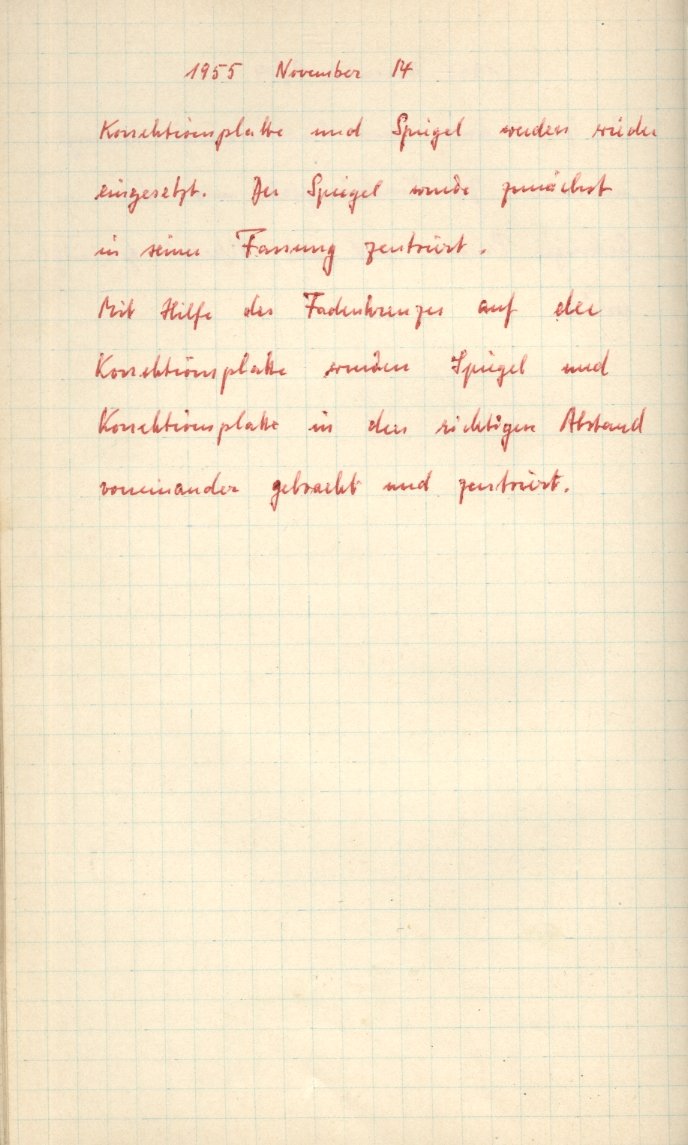 1955 November 14
Korrektionsplatte und Spiegel werden wieder
eingesetzt. Der Spiegel wurde zunächst
in seiner Fassung zentriert.
Mit Hilfe des Fadenkreuzes auf der
Korrektionsplatte wurden Spiegel und
Korrektionsplatte in den richtigen Abstand
voneinander gebracht und zentriert.